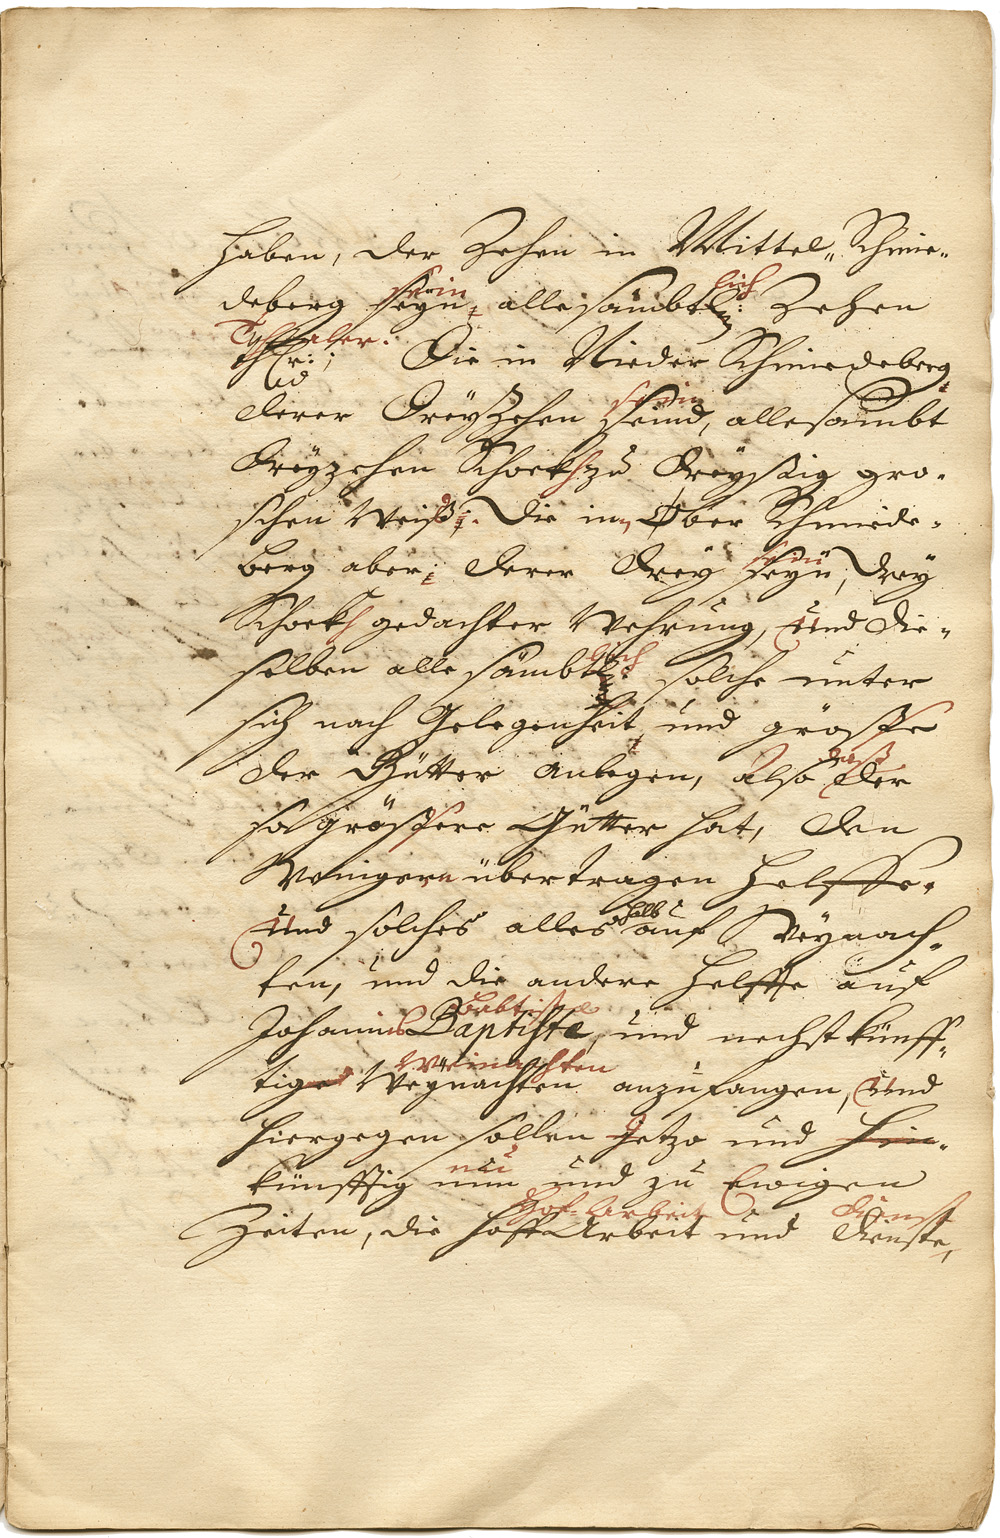 haben, der Zehen in Mittel„ Schmie„
sein lich
deberg seyn, alle sämbtl: Zehen
Thaler.
thlr: Die in Nieder Schmiedeberg
sein
derer Dreyzehen seind, alle sambt
Dreyzehen Schockh zu Dreyssig gro„
schen Weiß; Die in Ober Schmiede„
sein
berg aber; derer Drey seyn, Drey
Schockh gedachter Wehrung, Und die„
lich
selben alle sämbtl: solche unter
sich nach Gelegenheit und grösse
daß
der Gütter anlegen, also der
so grössere Gütter hat, den
Wenigern übertragen helffe.
halb
Und solches alles auf Weynach„
ten, und die andere helffte auf
Babtista
Johannis Baptista, und nechstkünff„
Weinachten
tiger Weynachten anzufangen, Und
hiergegen sollen Jetzo und hin„
nu
künfftig nun und zu Ewigen
Hof-Arbeit Dienst
Zeiten, die hoff Arbeit und Dienste,